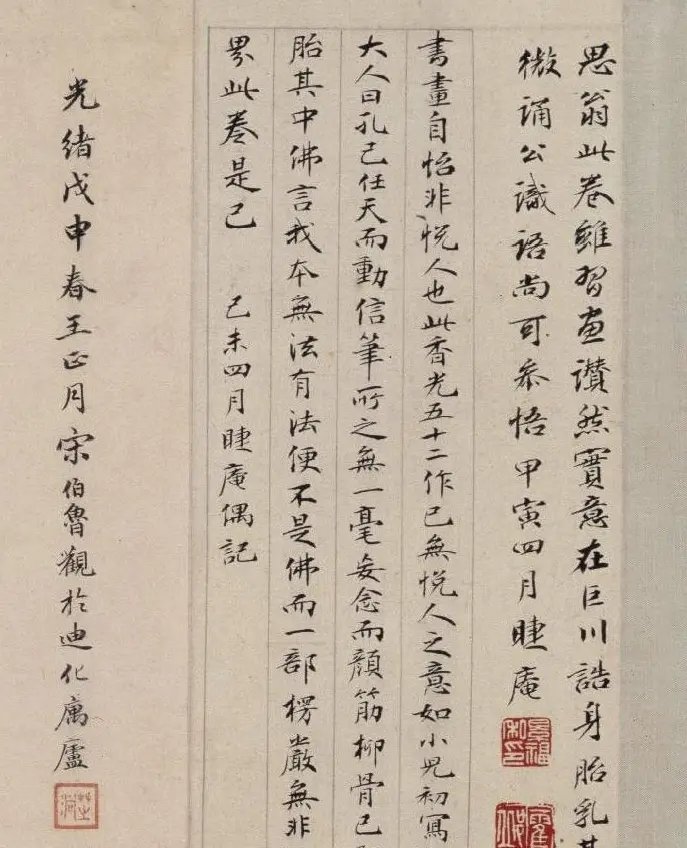 思翁此卷雖習畫讚然實意在巨川誥身胎乳
微誦公識語尚可參悟甲寅四月睫庵
書畫自怡非悅人也此香光五十二作已無悅人之意如小兒初寫
大人曰孔已任天而動信筆所之無一毫妄念而顏筋柳骨已
胎其中佛言我本無法有法便不是佛而一部楞嚴無非
界此卷是已 己未四月睫庵偶記
光緒戊申春王正月宋伯魯觀於迪化寓廬